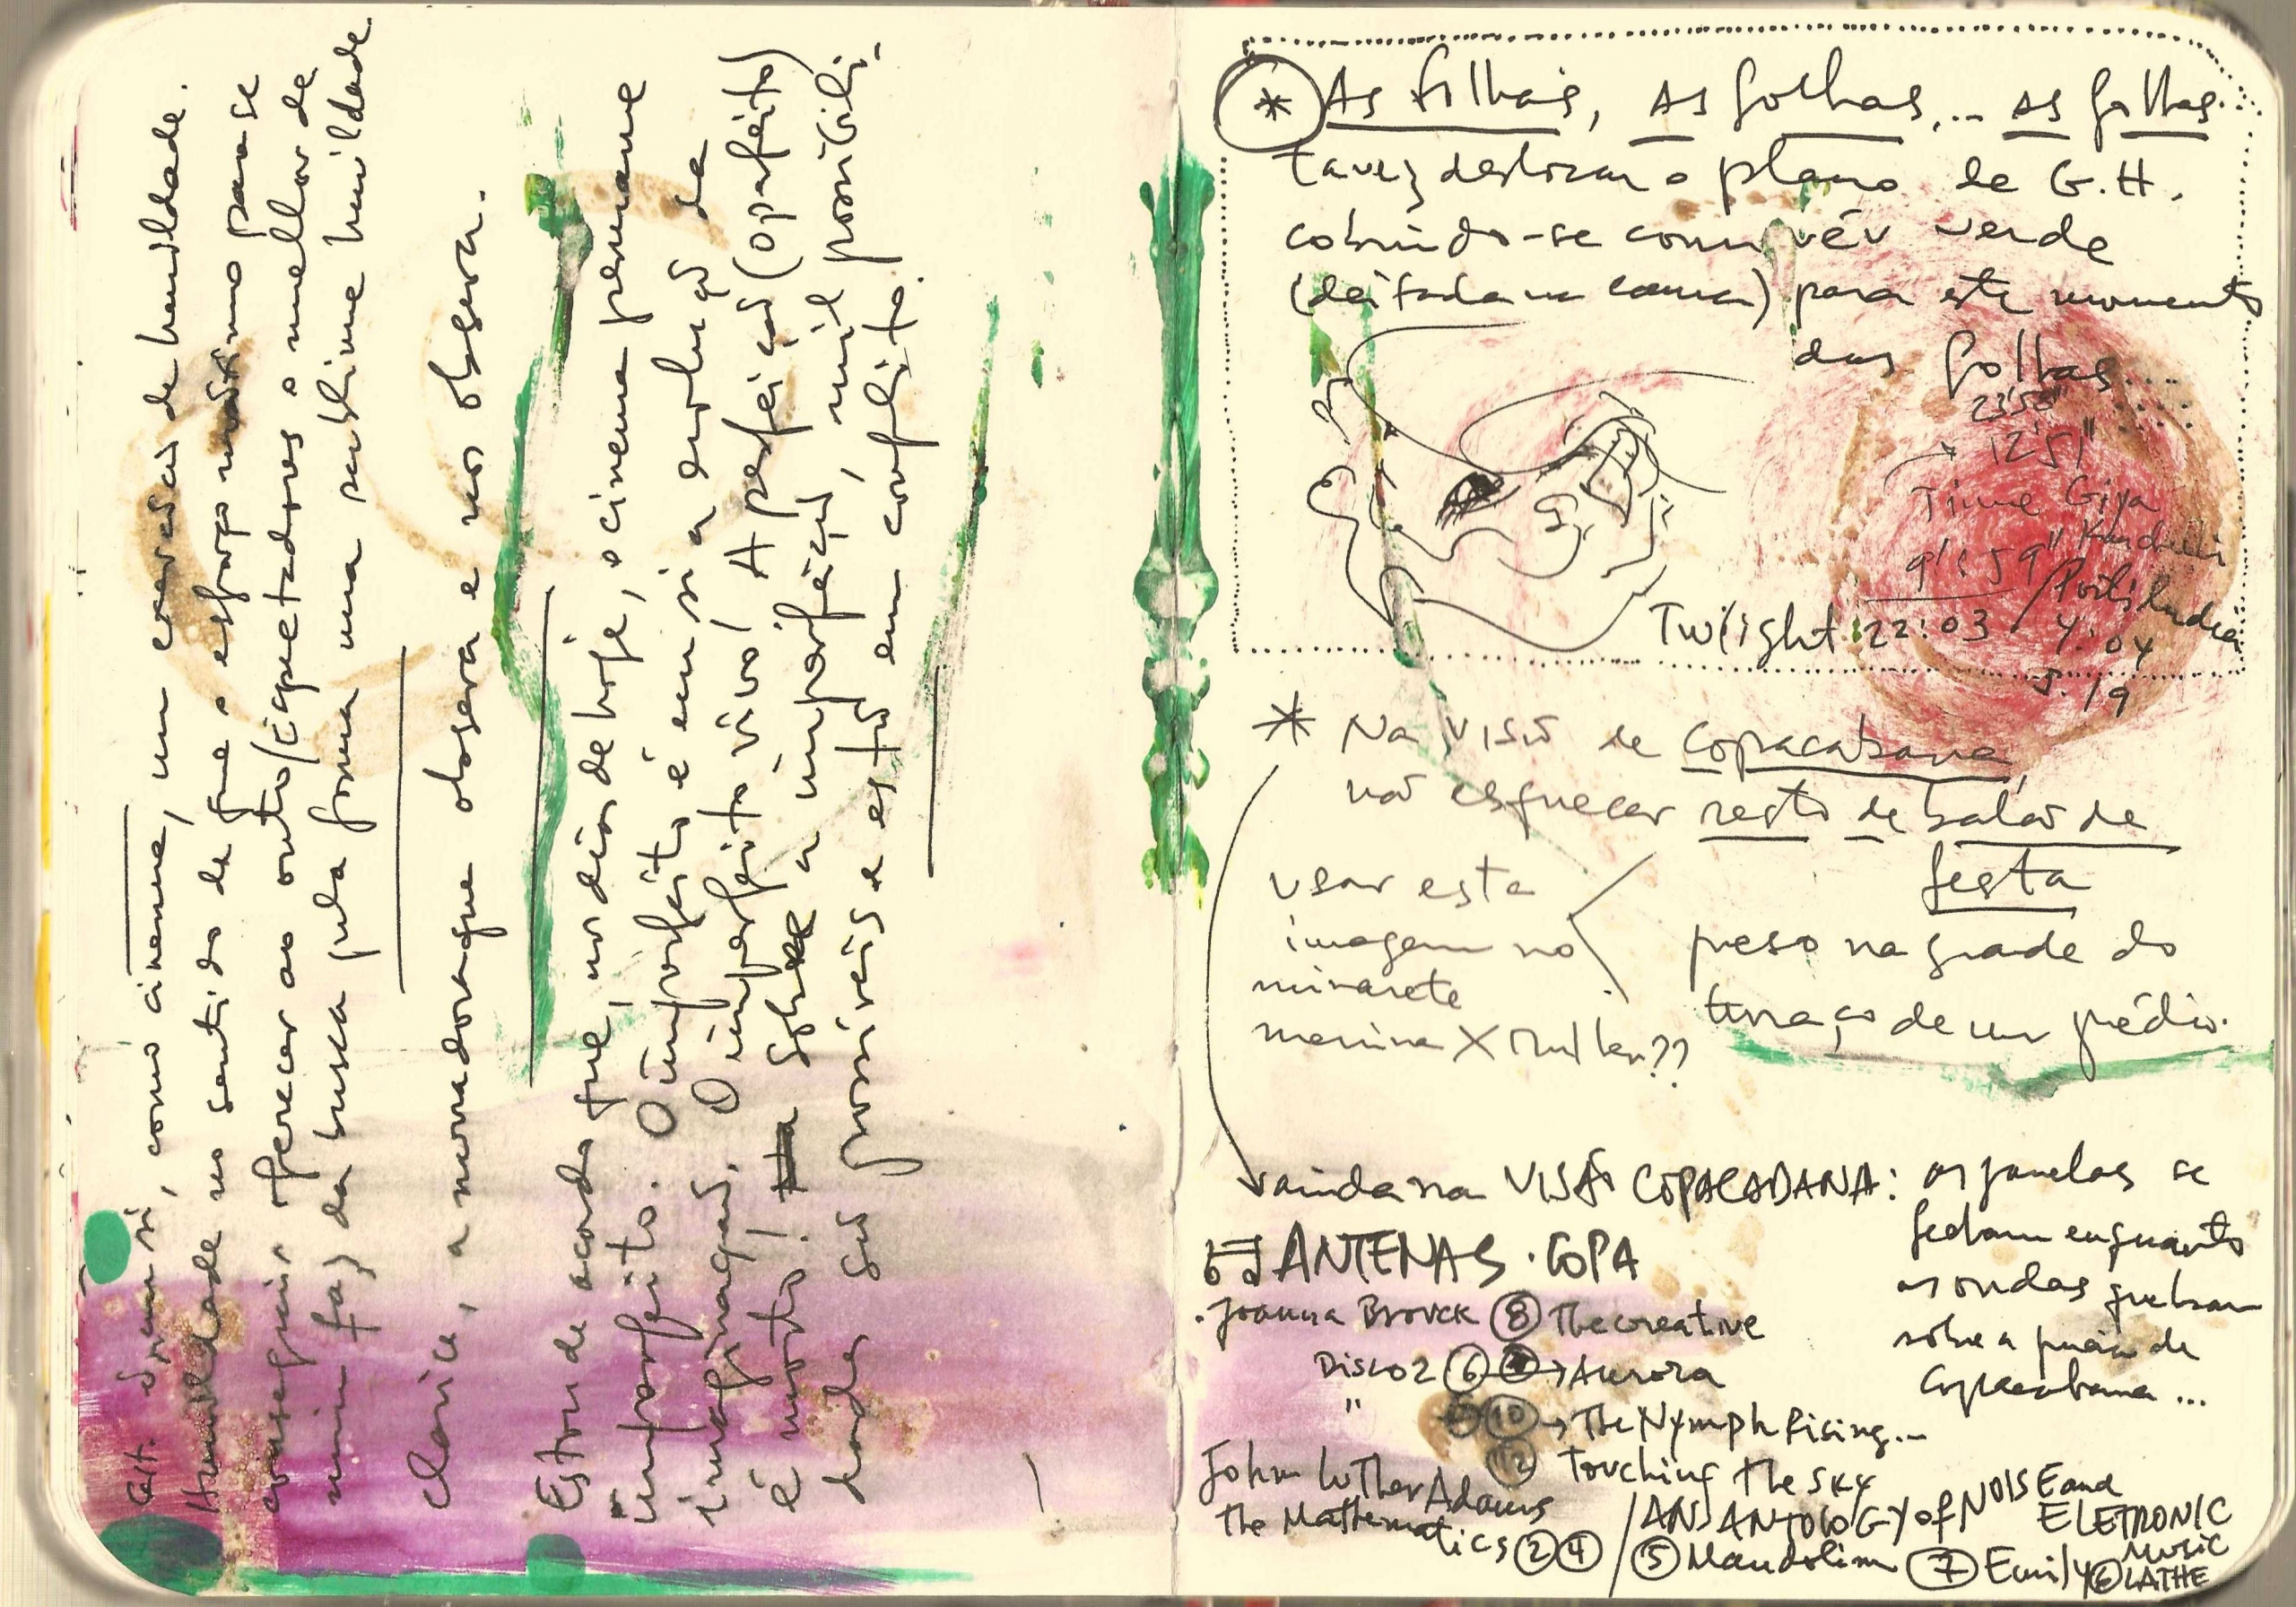 em si, como cinema, um de humildade.
Humildade no sentido de que o esforço para se
conseguir oferecer ao outro/espectadores o melhor de
mim faz da busca pela forma uma sublime humildade.
Clarice, a narradora que observa e nos observa.
Estou de acordo que, nos dias de hoje, o cinema permanece
imperfeito. O imperfeito é em si a evolução da
imaginação. O imperfeito vivo! A perfeição (o perfeito)
é morto! Sobre a imperfeição, mil possibili-
dades são possíveis e estão em conflito.
* As filhas, As folhas,... as folhas.
talvez deslizam o plano de G.H.
cobrindo-se com véu verde
(deitada na cama) para este momento
das folhas....
23'50"
12'51"
Time Giya
9':59"
Twilight 22:03 / 4:04
5.19
* Na visão de Copacabana,
não esquecer resto de balão de
festa
preso na grade do
terraço de um prédio.
usar esta
imagem no
minarete
menina X mulher??
ainda na VISÃO COPACABANA: as janelas se
fecham enquanto
as ondas quebram
sobre a praia de
Copacabana...
ANTENAS. COPA
. Joanna Brouck ⑧ The creative
Disco 2 ⑥ → Aurora
" ⑩ → The Nymph Rising...
⑫ Touching The Sky
John Luther Adams
the Mathematics ② ④
/ AN ANTOLOGY of NOISE and
ELETRONIC
MUSIC
⑤ Mandolim ⑦ Emily ⑥ LATHE